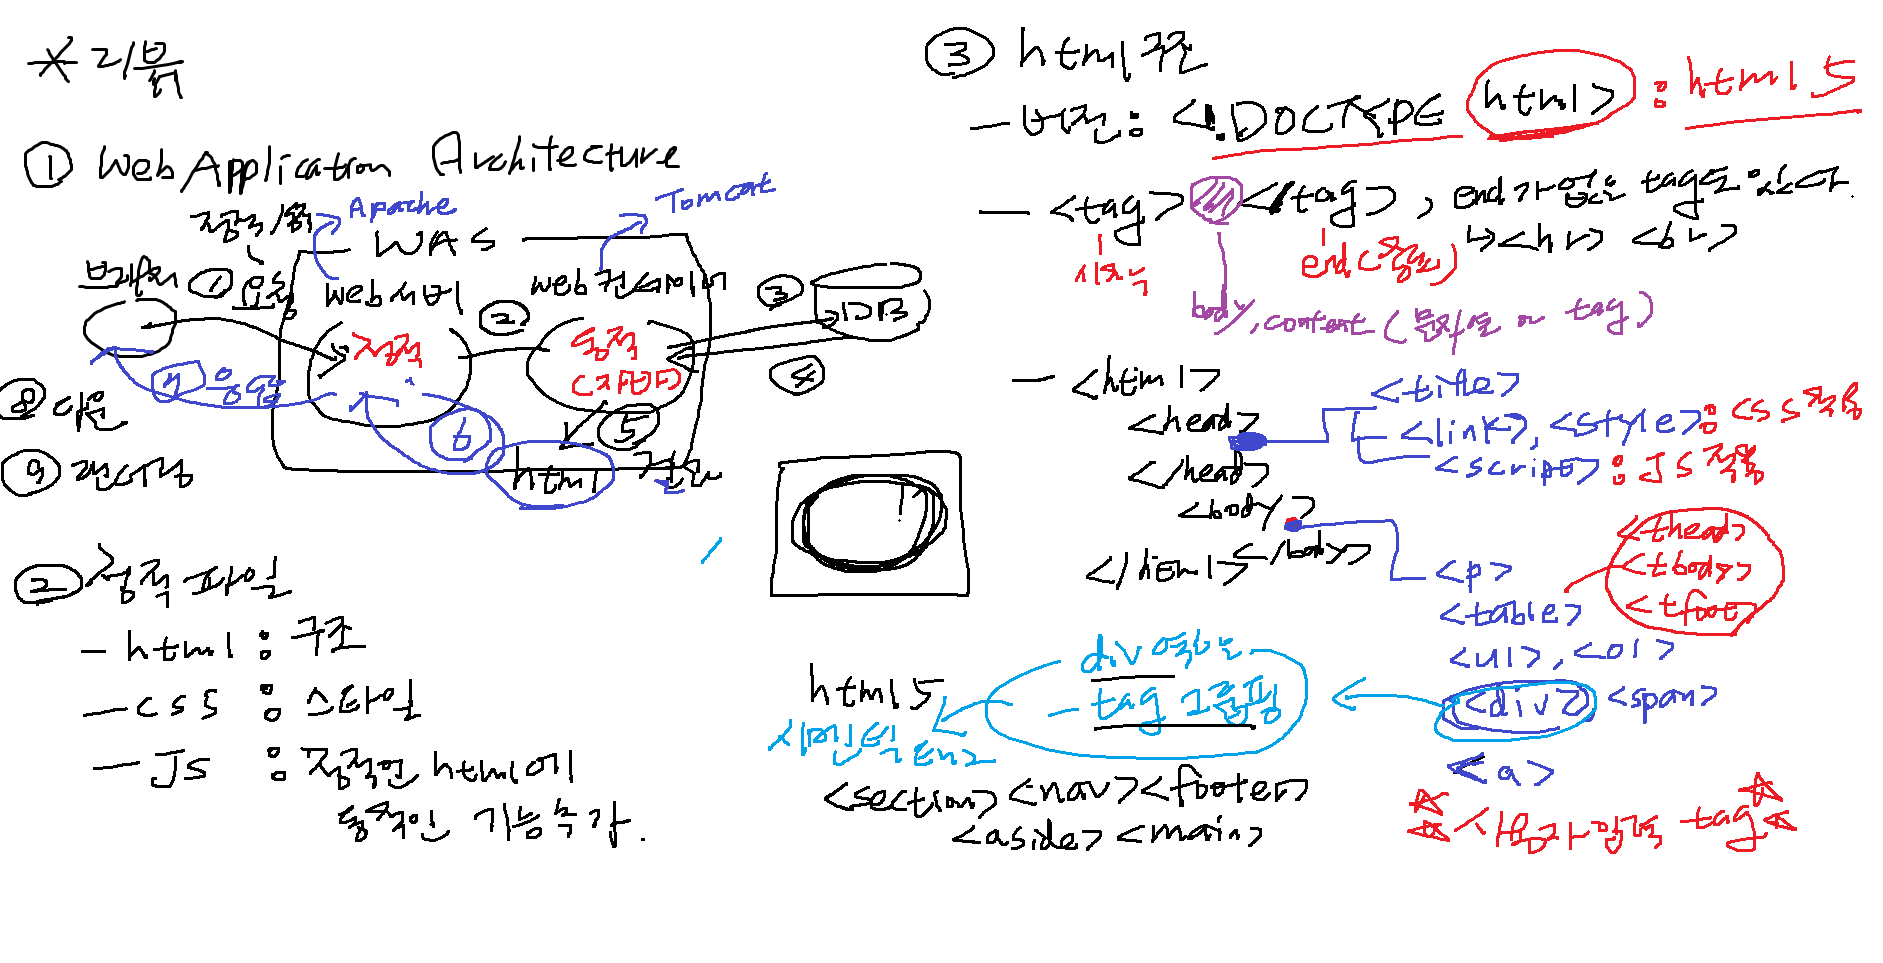 * 리뷰
① Web Application Architecture
Apache
Tomcat
WAS
① 요청
web서버
web 컨테이너
정적
②
동적
(자바)
③
DB
④
⑤
html
⑥
⑦ 응답
⑧ 다운
⑨ 렌더링
② 정적 파일
- html : 구조
- css : 스타일
- JS : 정적인 html에
동적인 기능추가.
③ html구조
- 버전: <!DOCTYPE html> : html5
- <tag> </tag>, end가 없는 tag도 있다.
↳ <hr> <br>
시작
end(종료)
body, content (문자열 or tag)
- <html>
<head>
</head>
<body>
</body>
</html>
<title>
<link>, <style> : css적용
<script> : JS 적용
<p>
<table>
<thead>
<tbody>
<tfoot>
<ul>, <ol>
<div> <span>
<a>
사용자입력 tag
div 역할은
- tag 그룹핑
html5
시멘틱
<section> <nav> <footer>
<aside> <main>